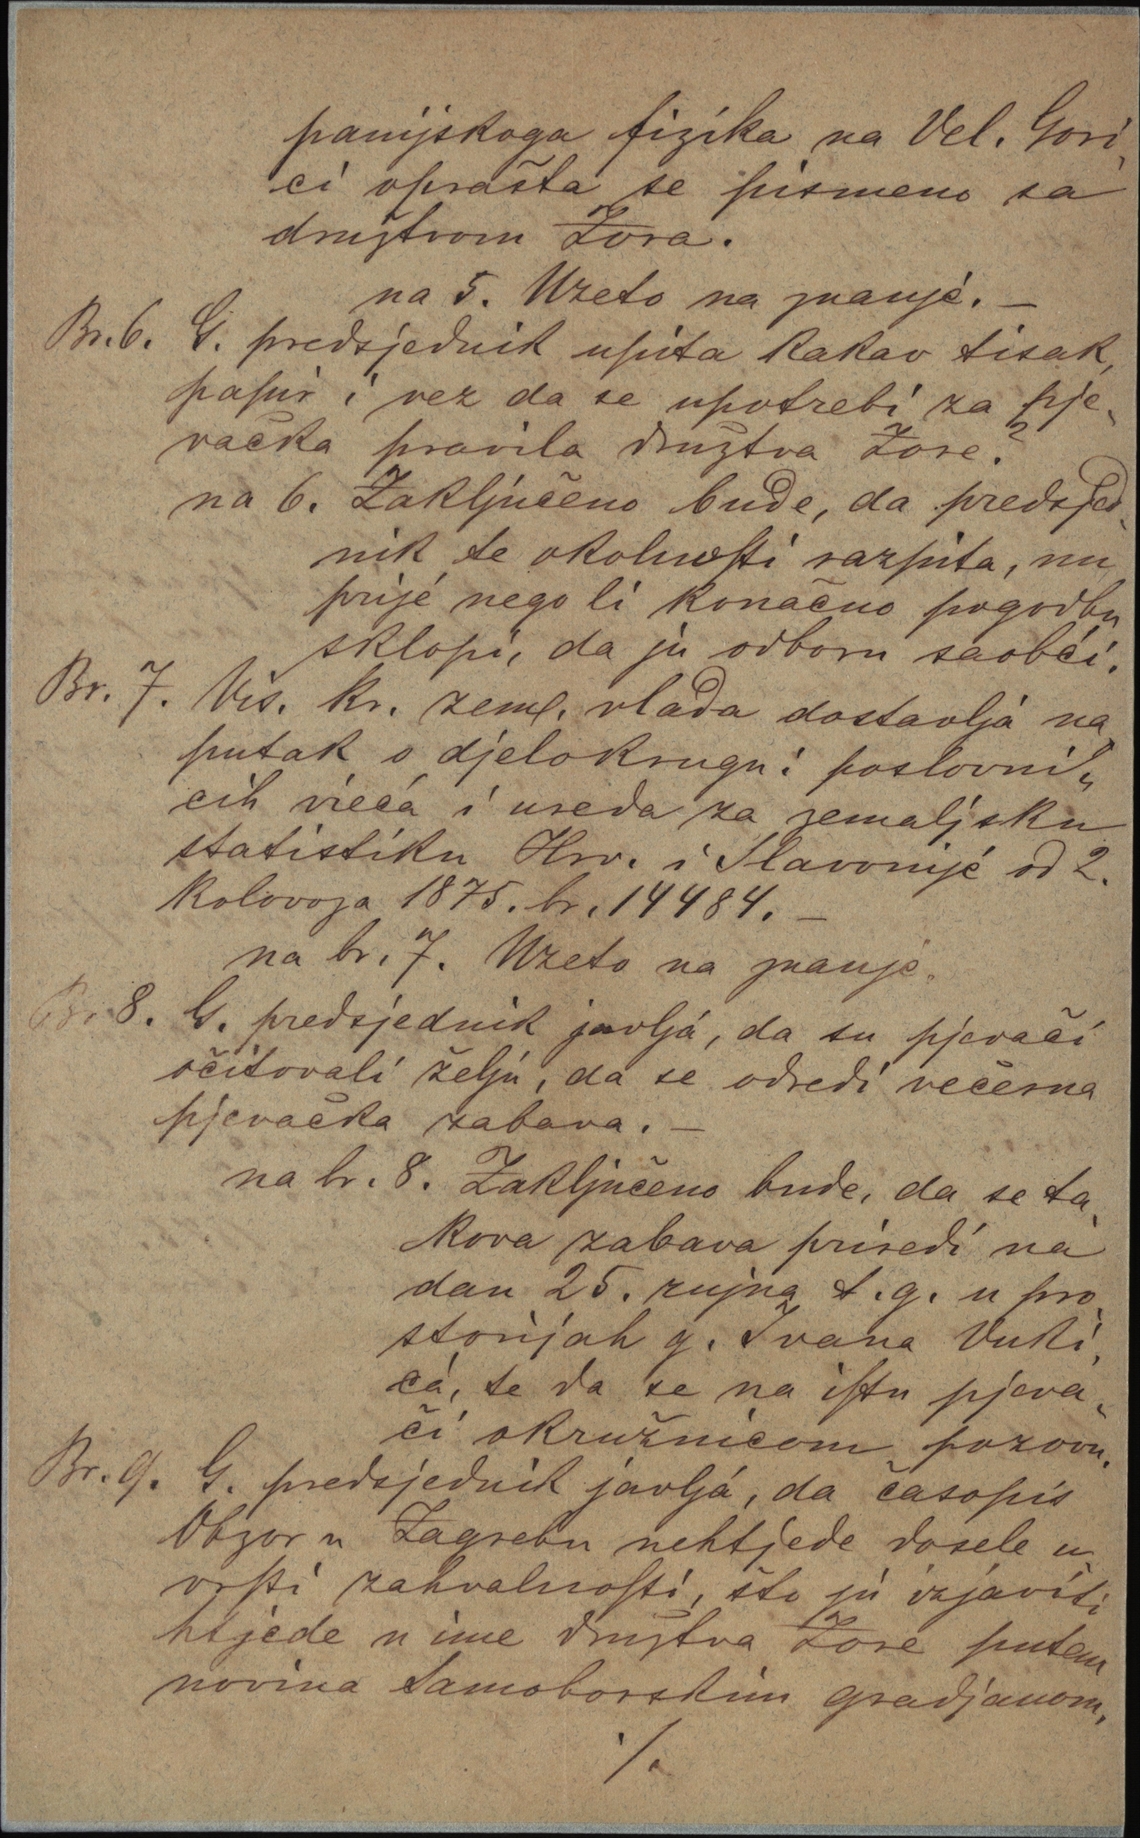 panijskoga fizika na Vel. Gori,
ci oprašta se pismeno sa
družtvom Zora.
na 5. Uzeto na znanje. –
Br. 6. G. predsjednik upita kakav tisak,
papir i vez da se upotrebi za pje„
vačka pravila družtva Zore?
na 6. Zaključeno bude, da predsjed„
nik te okolnosti razpita, nu
prije nego li konačno pogodbu
sklopi, da ju odboru saobći.
Br. 7. Vis. kr. zem. vlada dostavlja na„
putak o djelokrugu i poslovni„
cih vieća i ureda za zemaljsku
statistiku Hrv. i Slavonije od 2.
kolovoza 1875. br. 14484. –
na br. 7. Uzeto na znanje.
Br. 8. G. predsjednik javlja, da su pjevači
očitovali želju, da se odredi večerna
pjevačka zabava. –
na br. 8. Zaključeno bude, da se ta„
kova zabava priredi na
dan 25. rujna t. g. u pro„
storijah g. Ivana Vuki„
ća, te da se na istu pjeva„
či okružnicom pozovu.
Br. 9. G. predsjednik javlja, da časopis
Obzor u Zagrebu nehtjede dosele u„
vrsti zahvalnosti, što ju izjaviti
htjede u ime družtva Zore putem
novina Samoborskim gradjanom,
./.